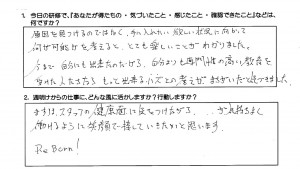 1. 今日の研修で、「あなたが得たもの ・ 気づいたこと ・ 感じたこと ・ 確認できたこと」などは、
何ですか?
原因を見つけるのではなく、手に入れたい、欲しい状況に向かって
何が可能かを考えると、とても楽しいことがわかりました。
今まで 自分にも出来なのだから、自分よりも専門性の高い教育を
受けた人たちなら もっと出来るハズとの考えが まちがいだと気づきました。
2. 週明けからの仕事に、どんな風に活かしますか?行動しますか?
まずは、スタッフの健康面に気をつけながら、 が気持ちよく
働けるように 笑顔で接していきたいと思います。
Re Born!